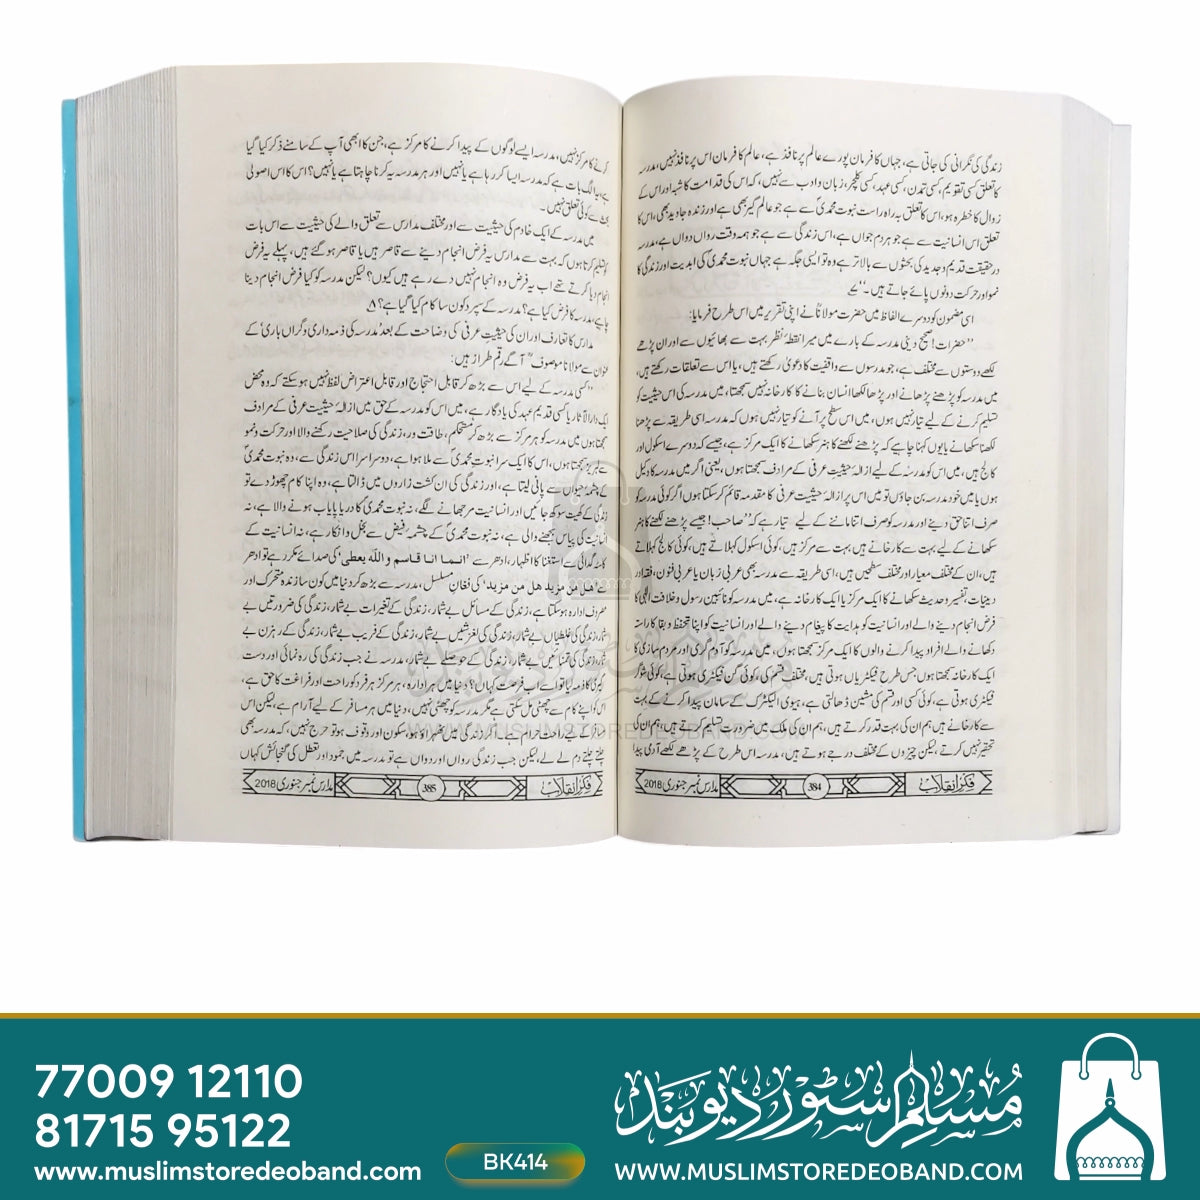 زندگی کی نگرانی کی جاتی ہے، جہاں کا فرمان پورے عالم پر نافذ ہے، عالم کا فرمان اس پر نافذ نہیں، مدرسہ
کا تعلق کسی تقویم، کسی تمدن، کسی عہد، کسی کلچر، زبان و ادب سے نہیں، کہ اس کی قدامت کا شبہ اور اس کے
زوال کا خطرہ ہو، اس کا تعلق براہ راست نبوت محمدیؐ سے ہے جو عالم گیر بھی ہے اور زندہ جاوید بھی، اس کا
تعلق اس انسانیت سے ہے جو ہر دم جواں ہے، اس زندگی سے ہے جو ہمہ وقت رواں دواں ہے، مدرسہ
درحقیقت قدیم و جدید کی بحثوں سے بالاتر ہے وہ تو ایسی جگہ ہے جہاں نبوت محمدیؐ کی ابدیت اور زندگی کا
نمو اور حرکت دونوں پائے جاتے ہیں۔‘‘ ے
اسی مضمون کو دوسرے الفاظ میں حضرت مولاناؒ نے اپنی تقریر میں اس طرح فرمایا:
’’حضرات! صحیح دینی مدرسہ کے بارے میں میرا نقطۂ نظر بہت سے بھائیوں سے اور ان پڑھے
لکھے دوستوں سے مختلف ہے، جو مدرسوں سے واقفیت کا دعویٰ رکھتے ہیں، یا اس سے تعلقات رکھتے ہیں،
میں مدرسہ کو پڑھنے پڑھانے اور پڑھا لکھا انسان بنانے کا کارخانہ نہیں سمجھتا، میں مدرسہ کی اس حیثیت کو
تسلیم کرنے کے لیے تیار نہیں ہوں، میں اس سطح پر آنے کو تیار نہیں ہوں کہ مدرسہ اسی طریقہ سے پڑھنا
لکھنا سکھانے یا یوں کہنا چاہیے کہ پڑھنے لکھنے کا ہنر سکھانے کا ایک مرکز ہے، جیسے کہ دوسرے اسکول اور
کالج ہیں، میں اس کو مدرسہ کے لیے ازالۂ حیثیت عرفی کے مرادف سمجھتا ہوں، یعنی اگر میں مدرسہ کا وکیل
ہوں یا میں خود مدرسہ بن جاؤں تو میں اس پر ازالۂ حیثیت عرفی کا مقدمہ قائم کر سکتا ہوں اگر کوئی مدرسہ کو
صرف اتنا حق دینے اور مدرسہ کو صرف اتنا ماننے کے لیے تیار ہے کہ ’’صاحب! جیسے پڑھنے لکھنے کا ہنر
سکھانے کے لیے بہت سے کارخانے ہیں، بہت سے مرکز ہیں، کوئی اسکول کہلاتے ہیں، کوئی کالج کہلاتے
ہیں، ان کے مختلف معیار اور مختلف سطحیں ہیں، اسی طریقہ سے مدرسہ بھی عربی زبان یا عربی فنون، فقہ اور
دینیات، تفسیر و حدیث سکھانے کا ایک مرکز یا ایک کارخانہ ہے، میں مدرسہ کو نائبین رسول و خلافت الٰہی کا
فرض انجام دینے والے اور انسانیت کو ہدایت کا پیغام دینے والے اور انسانیت کو اپنا تحفظ و بقا کا راستہ
دکھانے والے افراد پیدا کرنے والوں کا ایک مرکز سمجھتا ہوں، میں مدرسہ کو آدم گری اور مردم سازی کا
ایک کارخانہ سمجھتا ہوں، جس طرح فیکٹریاں ہوتی ہیں، مختلف قسم کی، کوئی گن فیکٹری ہوتی ہے، کوئی شوگر
فیکٹری ہوتی ہے، کوئی کسی اور قسم کی مشین ڈھالتی ہے، ہیوی الیکٹرک کے سامان پیدا کرنے کے بہت
سے کارخانے ہیں ہم ان کی بہت قدر کرتے ہیں، ہم ان کی ملک میں ضرورت تسلیم کرتے ہیں، ہم ان کی
تحقیر نہیں کرتے، لیکن چیزوں کے مختلف درجے ہوتے ہیں، مدرسہ اس طرح کے پڑھے لکھے آدمی پیدا
فکر انقلاب 384 مدارس نمبر جنوری 2018
کرنے کا مرکز نہیں، مدرسہ ایسے لوگوں کے پیدا کرنے کا مرکز ہے، جن کا ابھی آپ کے سامنے ذکر کیا گیا
ہے، یہ الگ بات ہے کہ مدرسہ ایسا کر رہا ہے یا نہیں اور ہر مدرسہ یہ کرنا چاہتا ہے یا نہیں؟ اس کا اس اصولی
بحث سے کوئی تعلق نہیں۔
میں مدرسہ کے ایک خادم کی حیثیت سے اور مختلف مدارس سے تعلق والے کی حیثیت سے اس بات
کو تسلیم کرتا ہوں کہ بہت سے مدارس یہ فرض انجام دینے سے قاصر ہیں یا قاصر ہو گئے ہیں، پہلے یہ فرض
انجام دیا کرتے تھے اب یہ فرض وہ انجام نہیں دے رہے ہیں کیوں؟ لیکن مدرسہ کو کیا فرض انجام دینا
چاہیے، مدرسہ کا فرض کیا ہے؟ مدرسہ کے سپرد کون سا کام کیا گیا ہے؟ ۸
مدارس کا تعارف اور ان کی حیثیت عرفی کی وضاحت کے بعد ’مدرسہ کی ذمہ داری و گراں باری‘ کے
عنوان سے مولانا موصوفؒ آگے رقم طراز ہیں:
’’کسی مدرسہ کے لیے اس سے بڑھ کر قابل احتجاج اور قابل اعتراض لفظ نہیں ہو سکتے کہ وہ محض
ایک دار الآثار یا کسی قدیم عہد کی یادگار ہے، میں اس کو مدرسہ کے حق میں ازالۂ حیثیت عرفی کے مرادف
سمجھتا ہوں میں مدرسہ کو ہر مرکز سے بڑھ کر مستحکم، طاقت ور، زندگی کی صلاحیت رکھنے والا اور حرکت و نمو
سے لبریز سمجھتا ہوں، اس کا ایک سرا نبوت محمدیؐ سے ملا ہوا ہے، دوسرا سرا اس زندگی سے، وہ نبوت محمدیؐ
کے چشمۂ حیواں سے پانی لیتا ہے، اور زندگی کی ان کشت زاروں میں ڈالتا ہے، وہ اپنا کام چھوڑ دے تو
زندگی کے کھیت سوکھ جائیں اور انسانیت مرجھانے لگے، نہ نبوت محمدی کا دریا پایاب ہونے والا ہے، نہ
انسانیت کی پیاس بجھنے والی ہے، نہ نبوت محمدیؐ کے چشمۂ فیض سے بخل و انکار ہے، نہ انسانیت کے
کاسۂ گدائی سے استغنا کا اظہار، ادھر سے ’انما انا قاسم واللہ یعطی‘ کی صدائے مکرر ہے تو ادھر
سے ’ھل من مزید ھل من مزید‘ کی فغانِ مسلسل، مدرسہ سے بڑھ کر دنیا میں کون سا زندہ متحرک اور
مصروف ادارہ ہو سکتا ہے، زندگی کے مسائل بے شمار، زندگی کے تغیرات بے شمار، زندگی کی ضرورتیں بے
شمار، زندگی کی غلطیاں بے شمار، زندگی کی لغزشیں بے شمار، زندگی کے فریب بے شمار، زندگی کے رہزن بے
شمار، زندگی کی تمنائیں بے شمار، زندگی کے حوصلے بے شمار، مدرسہ نے جب زندگی کی رہنمائی اور دست
گیری کا ذمہ لیا تو اسے اب فرصت کہاں؟ دنیا میں ہر ادارہ، ہر مرکز ہر فرد کو راحت اور فراغت کا حق ہے،
اس کو اپنے کام سے چھٹی مل سکتی ہے مگر مدرسہ کو چھٹی نہیں، دنیا میں ہر مسافر کے لیے آرام ہے، لیکن اس
مسافر کے لیے راحت حرام ہے۔ اگر زندگی میں ٹھہراؤ ہو، سکون اور وقوف ہو تو حرج نہیں، کہ مدرسہ بھی
چلتے چلتے دم لے لے، لیکن جب زندگی رواں اور دواں ہے تو مدرسہ میں جمود اور تعطل کی گنجائش کہاں
فکر انقلاب 385 مدارس نمبر جنوری 2018
WWW.MUSLIMSTOREDEOBAND.COM
77009 12110
81715 95122
www.muslimstoredeoband.com
BK414
مسلم سٹور دیوبند
WWW.MUSLIMSTOREDEOBAND.COM